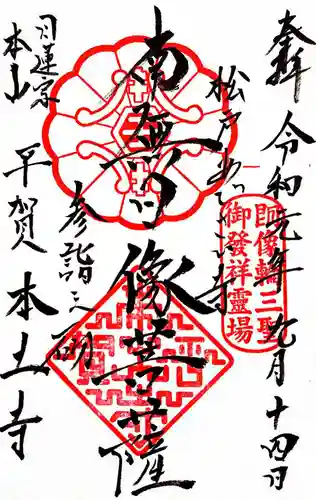 奉拝 令和元年九月十四日
松戸あじさい寺
南無日像菩薩
参詣之砌
日蓮宗
本山 平賀 本土寺
日像輪三聖
御發祥靈場